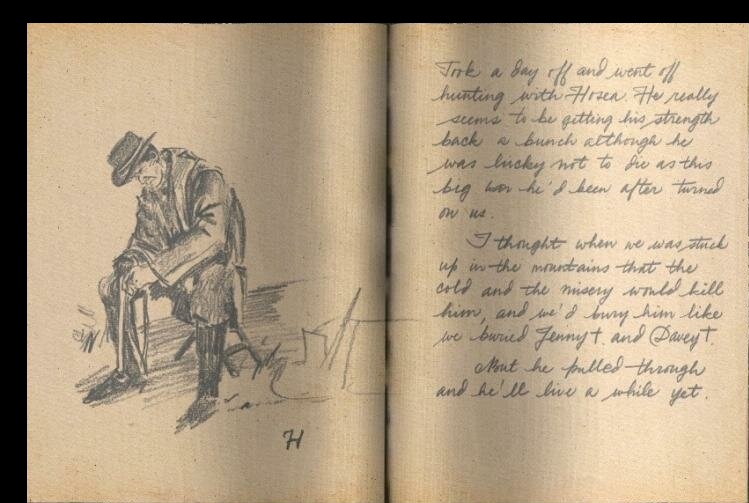 H
Took a day off and went off
hunting with Hosea. He really
seems to be getting his strength
back a bunch although he
was lucky not to die as this
big bar he'd been after turned
on us.
I thought when we was stuck
up in the mountains that the
cold and the misery would kill
him, and we'd bury him like
we buried Jenny† and Davey†.
But he pulled through
and he'll live a while yet.